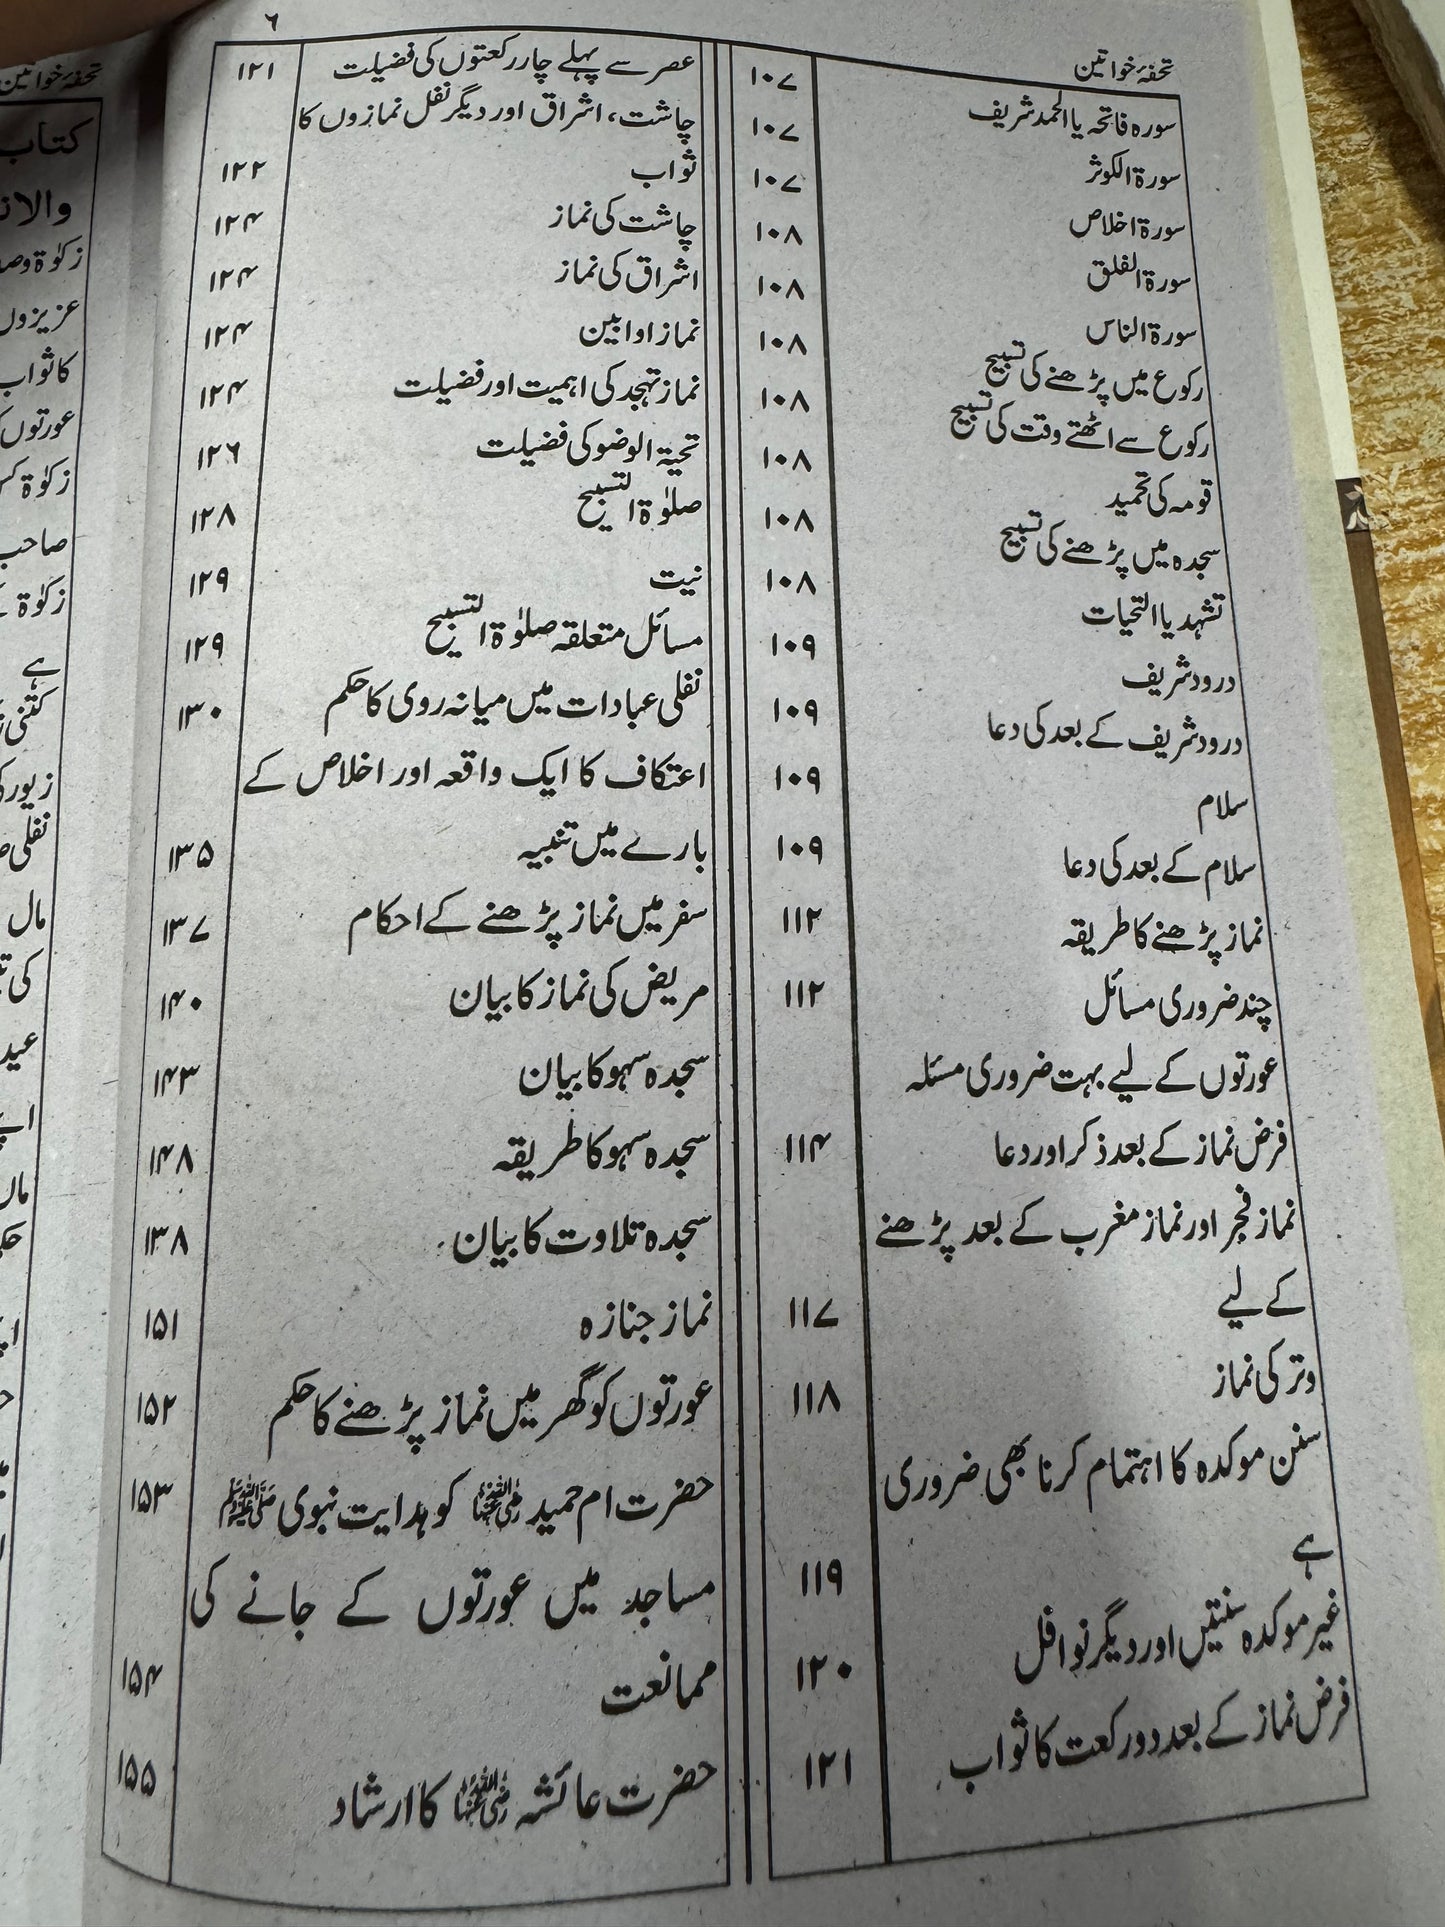 ۶
تحفۂ خواتین
سورہ فاتحہ یا الحمد شریف ۱۰۷
سورۃ الکوثر ۱۰۷
سورۃ اخلاص ۱۰۷
سورۃ الفلق ۱۰۸
سورۃ الناس ۱۰۸
رکوع میں پڑھنے کی تسبیح ۱۰۸
رکوع سے اٹھتے وقت کی تسبیح ۱۰۸
قومہ کی تحمید ۱۰۸
سجدہ میں پڑھنے کی تسبیح ۱۰۸
تشہد یا التحیات ۱۰۸
درود شریف ۱۰۹
درود شریف کے بعد کی دعا ۱۰۹
سلام ۱۰۹
سلام کے بعد کی دعا ۱۰۹
نماز پڑھنے کا طریقہ ۱۱۲
چند ضروری مسائل ۱۱۲
عورتوں کے لیے بہت ضروری مسئلہ
فرض نماز کے بعد ذکر اور دعا ۱۱۴
نماز فجر اور نماز مغرب کے بعد پڑھنے
کے لیے ۱۱۷
وتر کی نماز ۱۱۸
سنن موکدہ کا اہتمام کرنا بھی ضروری
ہے ۱۱۹
غیر موکدہ سنتیں اور دیگر نوافل ۱۲۰
فرض نماز کے بعد دو رکعت کا ثواب ۱۲۱
عصر سے پہلے چار رکعتوں کی فضیلت ۱۲۱
چاشت، اشراق اور دیگر نفل نمازوں کا
ثواب ۱۲۲
چاشت کی نماز ۱۲۴
اشراق کی نماز ۱۲۴
نماز اوابین ۱۲۴
نماز تہجد کی اہمیت اور فضیلت ۱۲۴
تحیۃ الوضو کی فضیلت ۱۲۶
صلوٰۃ التسبیح ۱۲۸
نیت ۱۲۹
مسائل متعلقہ صلوٰۃ التسبیح ۱۲۹
نفلی عبادات میں میانہ روی کا حکم ۱۳۰
اعتکاف کا ایک واقعہ اور اخلاص کے
بارے میں تنبیہ ۱۳۵
سفر میں نماز پڑھنے کے احکام ۱۳۷
مریض کی نماز کا بیان ۱۴۰
سجدہ سہو کا بیان ۱۴۳
سجدہ سہو کا طریقہ ۱۴۸
سجدہ تلاوت کا بیان ۱۳۸
نماز جنازہ ۱۵۱
عورتوں کو گھر میں نماز پڑھنے کا حکم ۱۵۲
حضرت ام حمید رضی اللہ عنہا کو ہدایت نبوی ﷺ ۱۵۳
مساجد میں عورتوں کے جانے کی
ممانعت ۱۵۴
حضرت عائشہ رضی اللہ عنہا کا ارشاد ۱۵۵
تحفۂ خواتین
کتاب
زکوٰۃ
عزیزوں
کا ثواب
عورتوں
زکوٰۃ
صاحب
زکوٰۃ
ہے
نفلی
مال
کی
عید